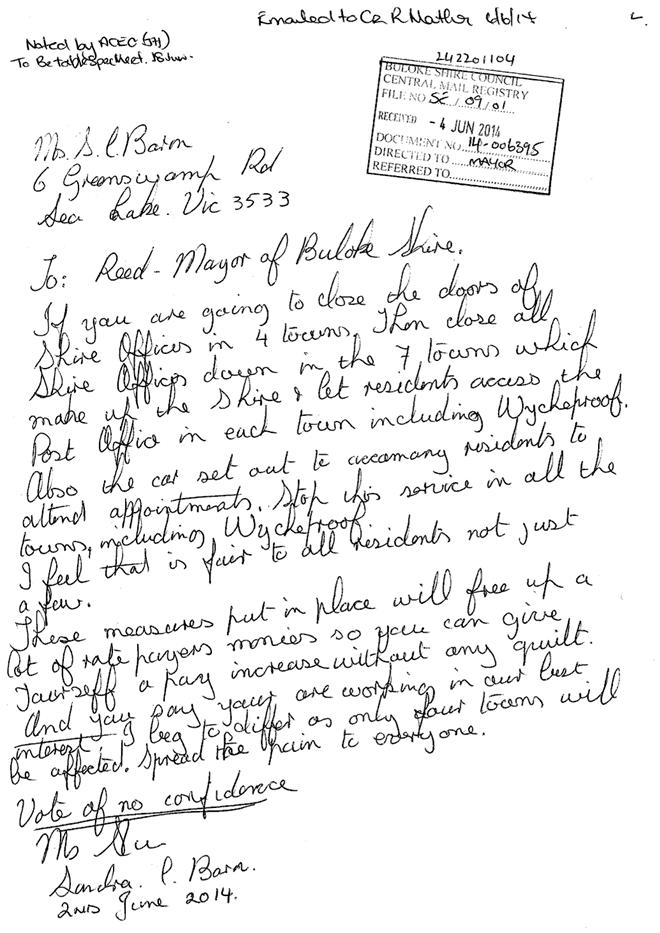 Emailed to Cr R Mather 6/6/14
Noted by ACEO
To Be tabled Spec Meet. 18 Jun.
242201104
BULOKE SHIRE COUNCIL
CENTRAL MAIL REGISTRY
FILE NO SE/09/01
RECEIVED - 4 JUN 2014
DOCUMENT NO. 14-006395
DIRECTED TO MAYOR
REFERRED TO
Ms. S. C Barn
6 Greenswamp Rd
Sea Lake. Vic 3533
To: Reed - Mayor of Buloke Shire.
If you are going to close the doors of
Shire Offices in 4 towns. Then close all
Shire Offices down in the 7 towns which
make up the Shire & let residents access the
Post Office in each town including Wycheproof.
Also the car set out to accomany residents to
attend appointments. Stop this service in all the
towns, including Wycheproof
I feel that is fair to all residents not just
a few.
These measures put in place will free up a
lot of rate payers monies so you can give
Yourself a pay increase without any guilt.
And you say your are working in our best
interest I beg to differ as only four towns will
be affected. Spread the pain to everyone.
Vote of no confidence
Ms
Sandra. C. Barn.
2nd June 2014.